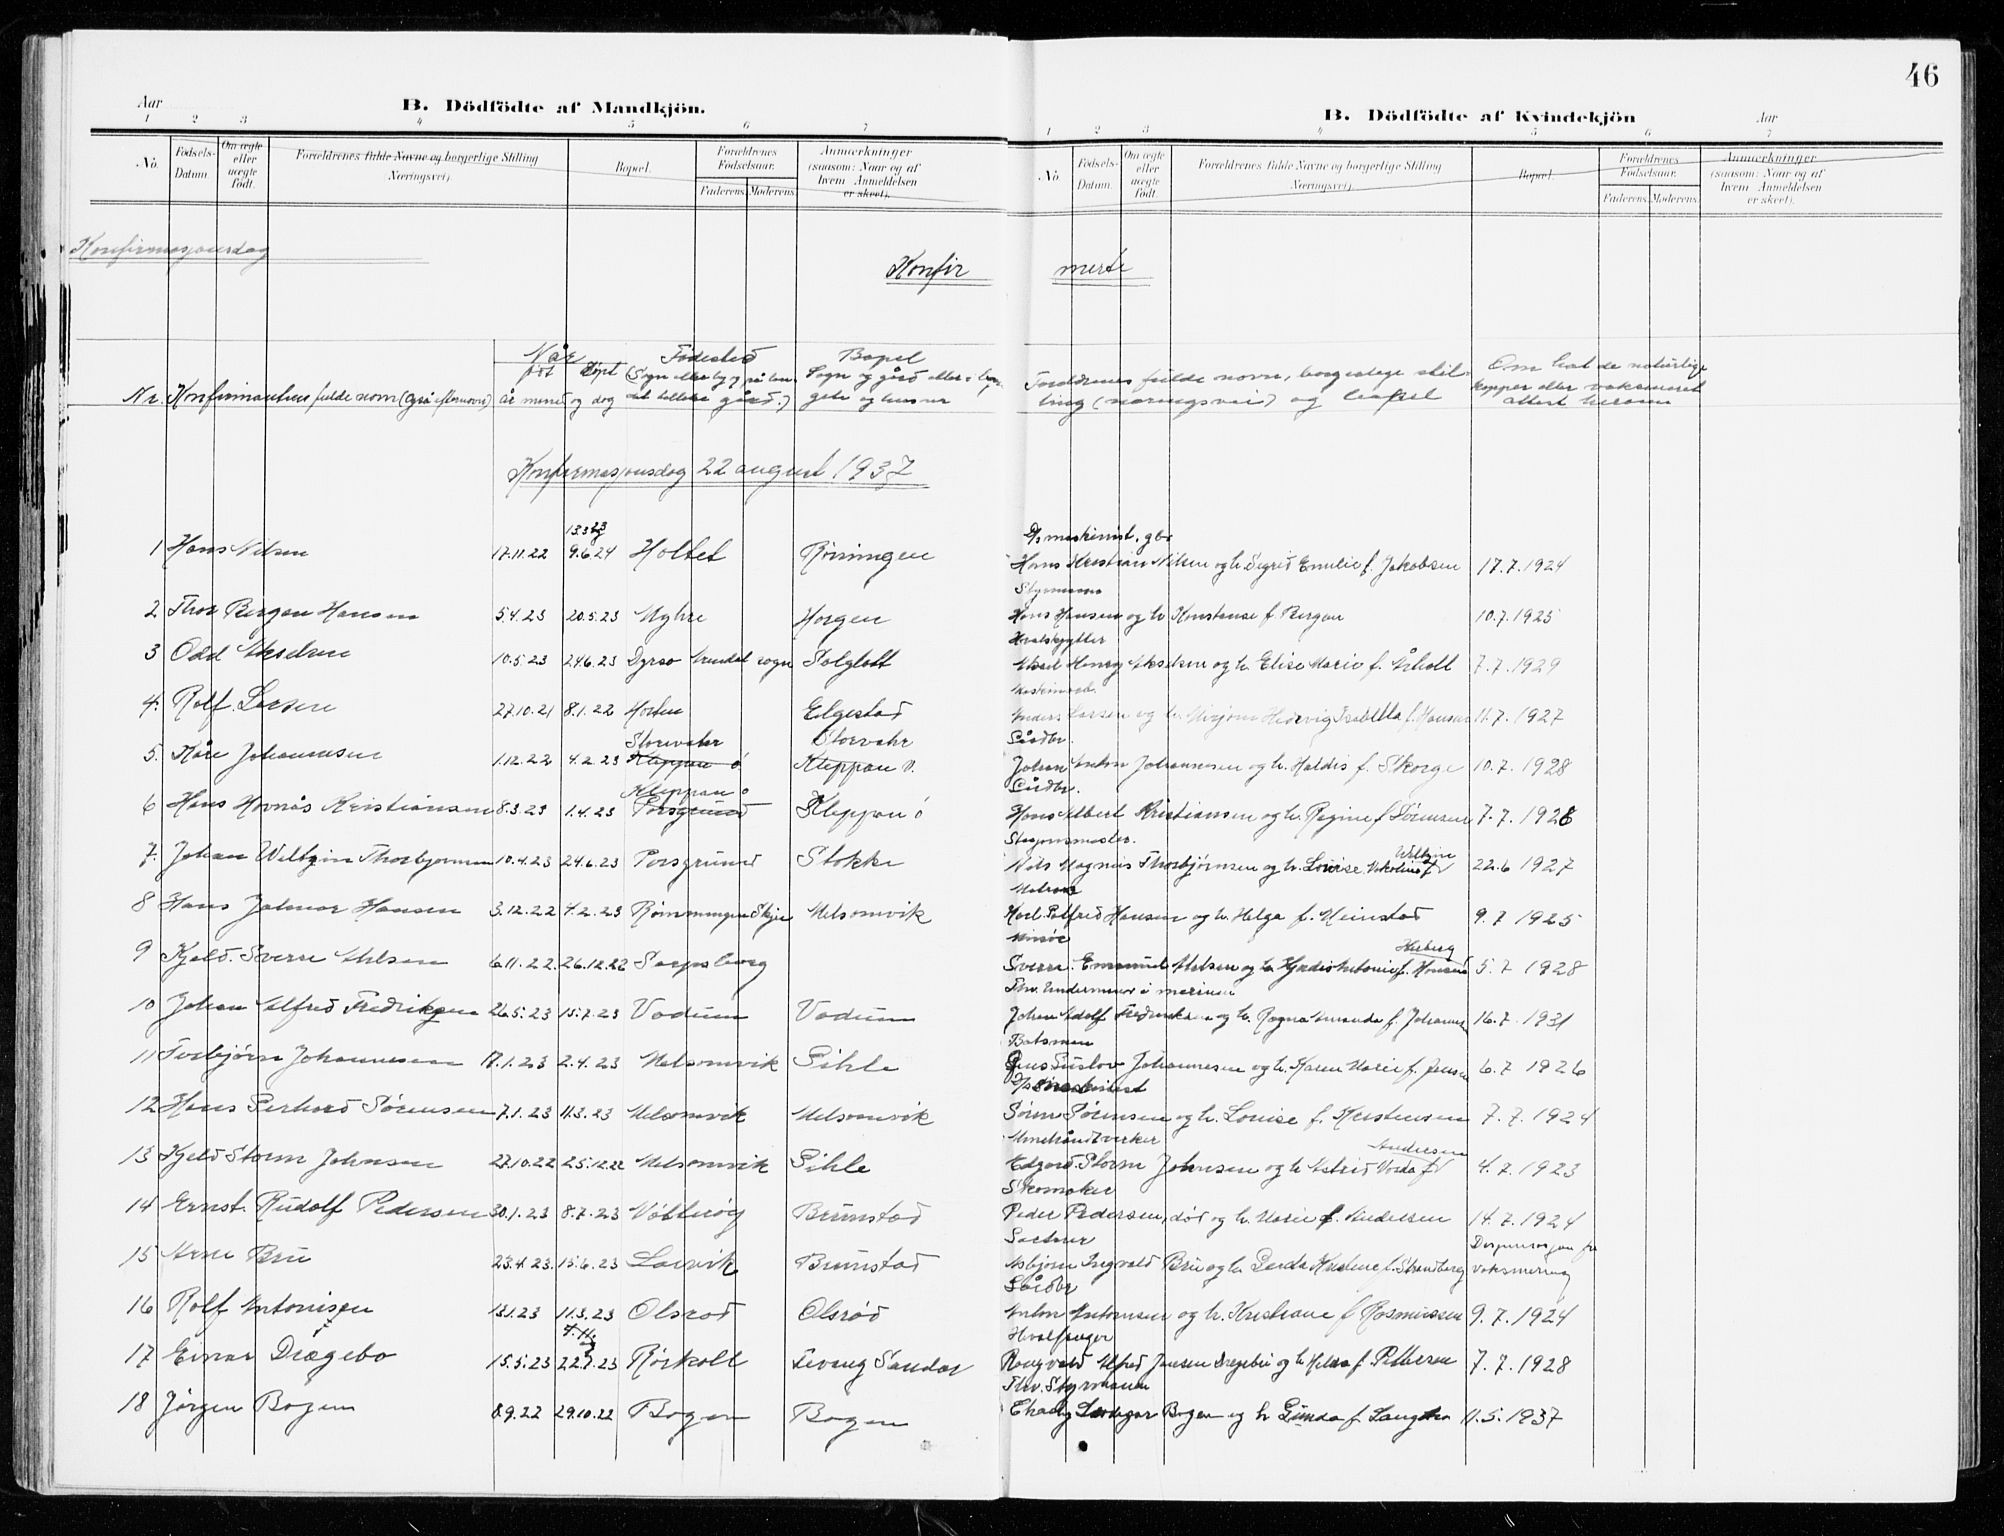 46
Aar
B. Dödfödte af Mandkjön.
1 2 3 4 5 6 7
No.
Födsels-Datum.
Om ægte eller uægte födt.
Forældrenes fulde Navne og borgerlige Stilling Næringsvei).
Bopæl.
Forældrenes Födselsaar.
Faderens. Moderens.
Anmærkninger (saasom: Naar og af hvem Anmeldelsen er skeet).
B. Dödfödte af Kvindekjön
Aar
1 2 3 4 5 6 7
No.
Födsels-Datum.
Om ægte eller uægte födt.
Forældrenes fulde Navne og borgerlige Stilling Næringsvei).
Bopæl.
Forældrenes Födselsaar.
Faderens. Moderens.
Anmærkninger (saasom: Naar og af hvem Anmeldelsen er skeet).
Konfirmasjonsdag
Konfir merte
Nr. Konfirmantens fulde navn (også efternavn)
Når
født døpt
år måned og dag
Fødested
(Sogn eller by, på landet tillike gård.)
Bopel
Sogn og gård eller i by gate og husnr
Foreldrenes fulde navn, borgerlige stilling (næringsvei) og bopel
Om hat de naturlige kopper eller vaksinert attest herom
Konfirmasjonsdag 22 august 1937
1 Hans Nilsen 17.11.22 9.6.24 Holtet Rønningen
maskinist, gbr
Hans Kristian Nilsen og h. Sigrid Emilie f. Jakobsen 17.7.1924
2 Thor Bergan Hansen 5.4.23 20.5.23 Myhre Horgen
Styrmann
Hans Hansen og h. Konstanse f. Bergan 10.7.1925
3 Odd Akselsen 10.5.23 24.6.23 sogn Solgløtt
Hvalskytter
Aksel Henry Akselsen og h. Elise Marie f. 7.7.1929
4. Rolf Larsen 27.10.21 8.1.22 Horten Elgestad
Anders Larsen og h. Mirjam Hedevig Isabella f. Hansen 11.7.1927
5. Kåre Johannesen 1.12.22 4.2.23 Storevahr Kleppan ø Storvahr Kleppan ø.
Småbr.
Johan Anton Johannesen og h. Haldis f. Skorge 10.7.1928
6 Hans Hovnås Kristiansen 8.3.23 1.4.23 Kleppan ø Porsgrund Kleppan ø
Småbr.
Hans Albert Kristiansen og h. Regine f. Sørensen 7.7.1928
7. Johan Weltzin Thorbjørnsen 10.4.23 24.6.23 Porsgrund Stokke
Stasjonsmester.
Nils Magnus Thorbjørnsen og h. Louise f. Weltzin 22.6 1927
8 Hans Jalmar Hansen 3.12.22 4.2.23 Rønningen Skjee Melsomvik
Matros
Karl Alfred Hansen og h. Helga f. Meinstad 9.7 1925
9 Kjeld. Sverre Nilsen 6.11.22 26.12.22 Sarpsborg
Sverre Emanuel Nilsen og h. f. Hansen 5.7 1928
10 Johan Alfred Fredriksen 26.5.23 15.7.23 Vadum Vadum
Fhv. Underminør i marinen
Johan Adolf Fredriksen og h. Ragna Amanda f. Johannesen 16.7.1931
11 Torbjørn Johannesen 17.1.23 2.4.23 Melsomvik Sihle
Båtsman
Gustav Johannesen og h. Karen Marie f. Jensen 6.7 1926
12 Hans Gerhard Sørensen 7.1.23 11.3.23 Melsomvik Melsomvik
Søren Sørensen og h. Louise f. Kristensen 7.7.1924
13 Kjeld Storm Johnsen 27.10.22 25.12.22 Melsomvik Sihle
Minehåndverker
Edgard Storm Johnsen og h. Astrid f. Andersen 4.7.1923
14 Ernst Rudolf Pedersen 30.1.23 8.7.23 Brunstad
Skomaker
Peder Pedersen, død og h. Marie f. Andersen 14.7.1924
15 Arne Bru 23.4.23. 15.6.23 Larvik Brunstad
Gartner
Asbjørn Ingvald Bru og h. Gerda Kristine f. Strandberg Dispensasjon fra vaksinering
16 Rolf Antonisen 13.1.23 11.3.23 Olsrød Olsrød
Småbr
Anton Antonisen og h. Kristiane f. Rasmussen 9.7.1924
17 Einar Drægebo 15.5.23 22.7.23 Rørkoll Tevang Sandar
Hvalfanger
Rangvald Alfred Jansen Drægebø og h. Helda f. Pettersen 7.7.1928
18 Jørgen Bogen 8.9.22 29.10.22 Bogen Bogen
Fhv. Styrmann
Bogen og h. Gunda f. 11.5.1937